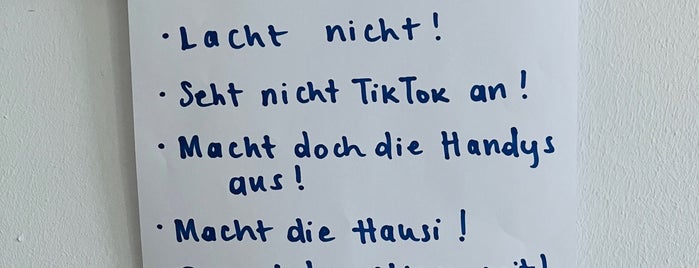 · Lacht nicht!
· Seht nicht TikTok an!
· Macht doch die Handys
aus!
· Macht die Hausi!